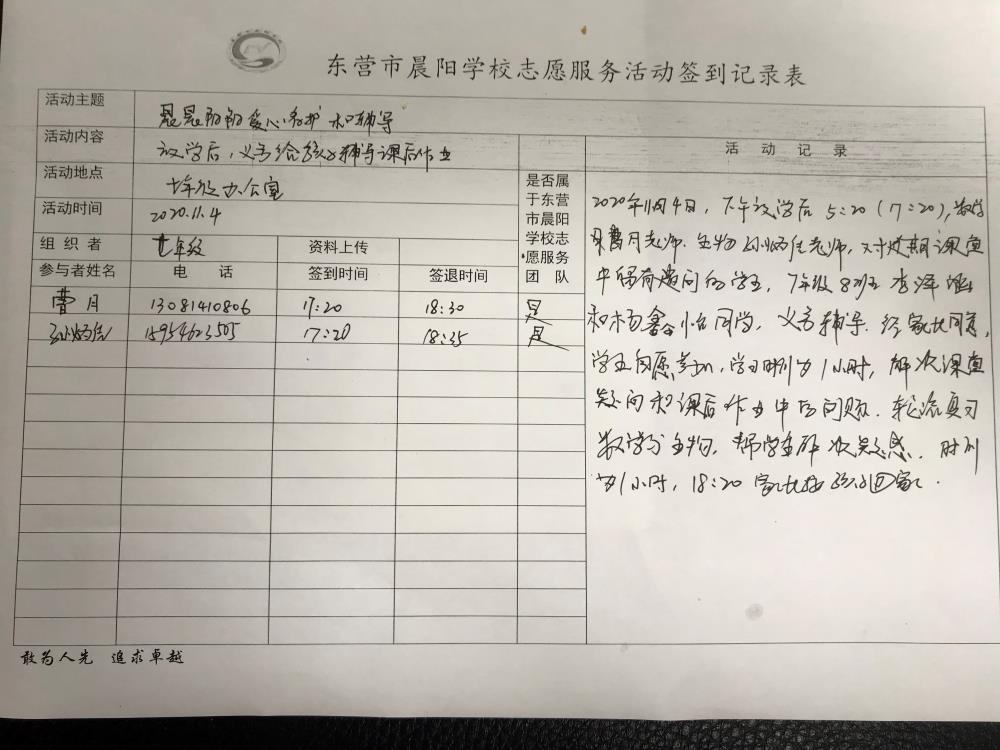 东营市晨阳学校志愿服务活动签到记录表
活动主题 晨晨阳阳爱心看护和辅导
活动内容 放学后，义务给孩子辅导课后作业
活动地点 七年级办公室
活动时间 2020.11.4
组织者 七年级 资料上传
参与者姓名 电话 签到时间 签退时间
是否属
于东营
市晨阳
学校志
愿服务
团队
曹月 13081410806 17:20 18:30 是
15954623505 17:20 18:35 是
活动记录
2020年11月4日，下午放学后5:20（17:20），数学
曹月老师、生物老师，对近期课堂
中留有疑问的学生，7年级8班李泽
和杨同学，义务辅导．经家长同意，
学生自愿参加，学习时间为1小时，解决课堂
疑问和课后作业中的问题．轮流复习
数学与生物，帮学生解决疑惑．时间
为1小时，18:20家长接孩子回家．
敢为人先 追求卓越